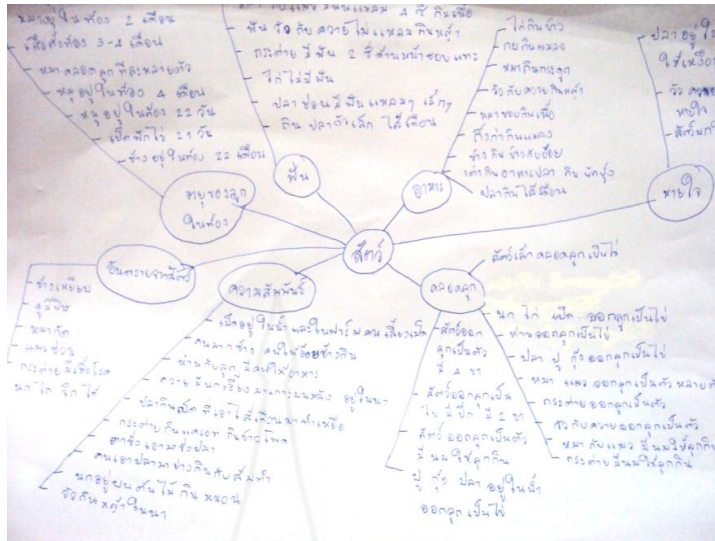 หมาอยู่ในท้อง 2 เดือน
เสือตั้งท้อง 3-4 เดือน
หมาคลอดลูกทีละหลายตัว
หมูอยู่ในท้อง 4 เดือน
หนูอยู่ในท้อง 22 วัน
เป็ดฟักไข่ 21 วัน
ช้างอยู่ในท้อง 22 เดือน
อายุของลูก
ในท้อง
แหลม 4 ซี่ กินเนื้อ
ฟันวัวกับควายไม่แหลมกินหญ้า
กระต่ายมีฟัน 2 ซี่ด้านหน้าชอบแทะ
ไก่ไม่มีฟัน
ปลาช่อนมีฟันแหลมๆ เล็กๆ
กินปลาตัวเล็ก ไส้เดือน
ฟัน
ไก่กินข้าว
กบกินแมลง
หมากินกระดูก
วัวกับควายกินหญ้า
หมาชอบกินเนื้อ
กิ้งก่ากินแมลง
ช้างกินข้าวกับอ้อย
เต่ากินอาหารปลา กินผักบุ้ง
ปลากินไส้เดือน
อาหาร
ปลาอยู่ใน
ใช้เหงือก
วัว
หายใจ
หายใจ
สัตว์
อันตรายจากสัตว์
ช้างเหยียบ
งูมีพิษ
หมากัด
แมวข่วน
กระต่ายมีเชื้อโรค
นก ไก่ จิกได้
ความสัมพันธ์
เป็ดอยู่ในน้ำและในฟาร์มคนเลี้ยงเป็ด
คนลากช้าง คนให้อ้อยช้างกิน
ห่านกับลูก
ควายมีนกเอี้ยงมาเกาะบนหลัง อยู่ในนา
ปลากินเบ็ดที่เอาไส้เดือนมาทำเหยื่อ
กระต่ายกินแครอท กินข้าวโพด
ตาชั่งเอามาชั่งปลา
คนเอาปลามาย่างกินกับส้มตำ
นกอยู่บนต้นไม้ กินหนอน
วัวกินหญ้าในนา
คลอดลูก
สัตว์เล็กคลอดลูกเป็นไข่
นก ไก่ เป็ด ออกลูกเป็นไข่
ห่านออกลูกเป็นไข่
ปลา ปู กุ้ง ออกลูกเป็นไข่
หมา แมว ออกลูกเป็นตัว หลายตัว
กระต่ายออกลูกเป็นตัว
วัวกับควายออกลูกเป็นตัว
หมากับแมวมีนมให้ลูกกิน
กระต่ายมีนมให้ลูกกิน
สัตว์ออก
ลูกเป็นตัว
มี 4 ขา
สัตว์ออกลูกเป็น
ไข่ มีปีก มี 2 ขา
สัตว์ออกลูกเป็นตัว
มีนมให้ลูกกิน
ปู กุ้ง ปลา อยู่ในน้ำ
ออกลูกเป็นไข่